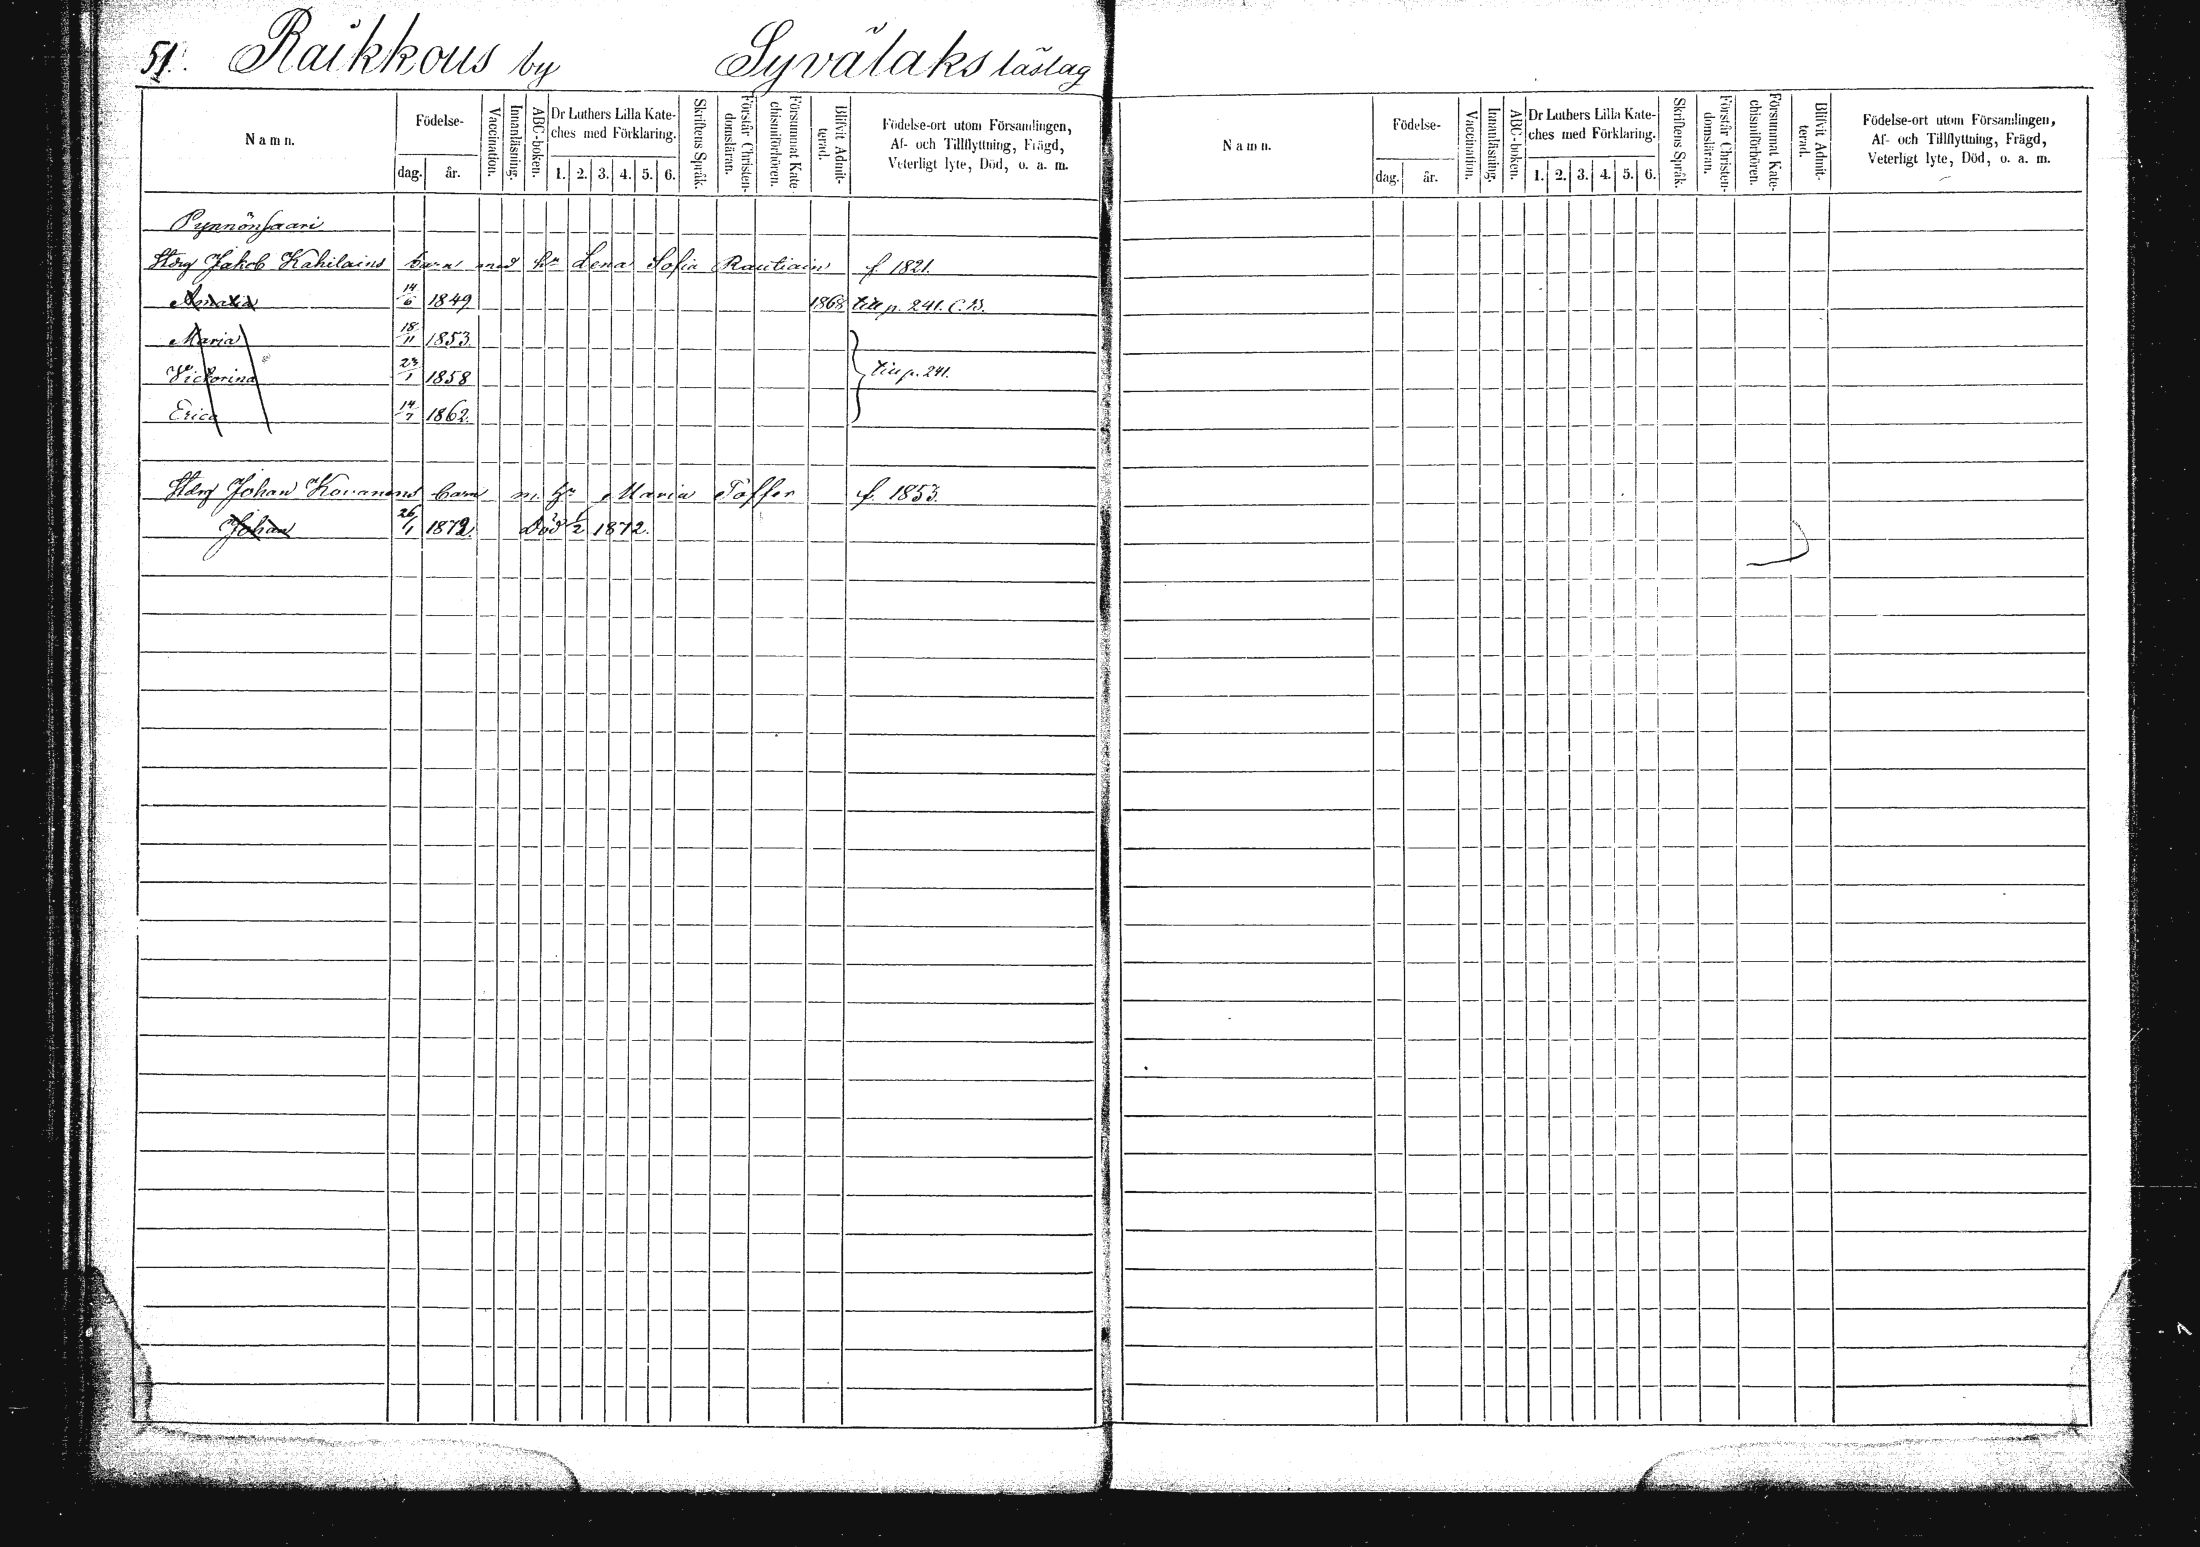 51. Raikkous by Syvälaks läslag
Namn.
Födelse-
dag. år.
Vaccination.
Innanläsning.
ABC-boken.
Dr Luthers Lilla Kate-
ches med Förklaring.
1. 2. 3. 4. 5. 6.
Skriftens Språk.
Förstår Christen-
domsläran.
Försummat Kate-
chismiförhören.
Blifvit Admit-
terad.
Födelse-ort utom Församlingen,
Af- och Tillflyttning, Frägd,
Veterligt lyte, Död, o. a. m.
Pynnönsaari
Jakob Kahilains barn med hu Lena Sofia Rautiain f. 1821.
Amalia 14/6 1849 1868 till p. 241. C.B.
Maria 18/11 1853.
Victorina 23/1 1858 till p. 241.
Erica 14/7 1862.
Johan Kouanens barn m. hu Maria Toffer f. 1853.
Johan 26/1 1872. Död 1/2 1872.
Namn.
Födelse-
dag. år.
Vaccination.
Innanläsning.
ABC-boken.
Dr Luthers Lilla Kate-
ches med Förklaring.
1. 2. 3. 4. 5. 6.
Skriftens Språk.
Förstår Christen-
domsläran.
Försummat Kate-
chismiförhören.
Blifvit Admit-
terad.
Födelse-ort utom Församlingen,
Af- och Tillflyttning, Frägd,
Veterligt lyte, Död, o. a. m.